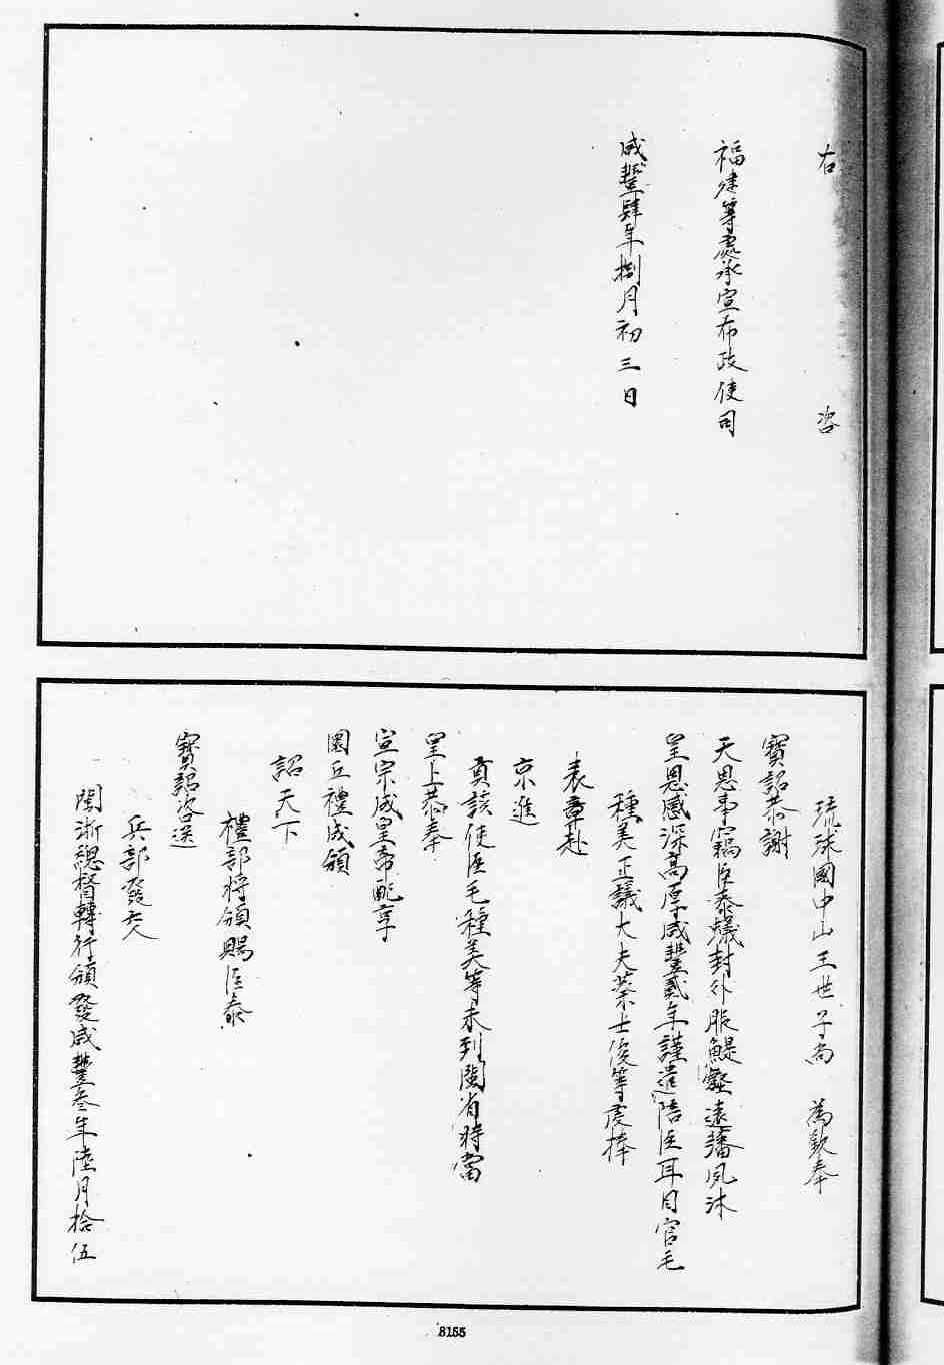 右　　　咨
福建等處承宣布政使司
咸豐肆年捌月初三日
琉球國中山王世子尚　為欽奉
寶詔恭謝
天恩事竊臣泰蟻封外服鯷壑遠藩夙沐
皇恩感深高厚咸豐貳年謹遣陪臣耳目官毛
種美正議大夫蔡士俊等虔捧
表章赴
京進
貢該使臣毛種美等未到閩省時當
皇上恭奉
宣宗成皇帝配享
圜丘禮成頒
詔天下
禮部將頒賜臣泰
寶詔咨送
兵部發交
閩浙總督轉行頒發咸豐叁年陸月拾伍
8155